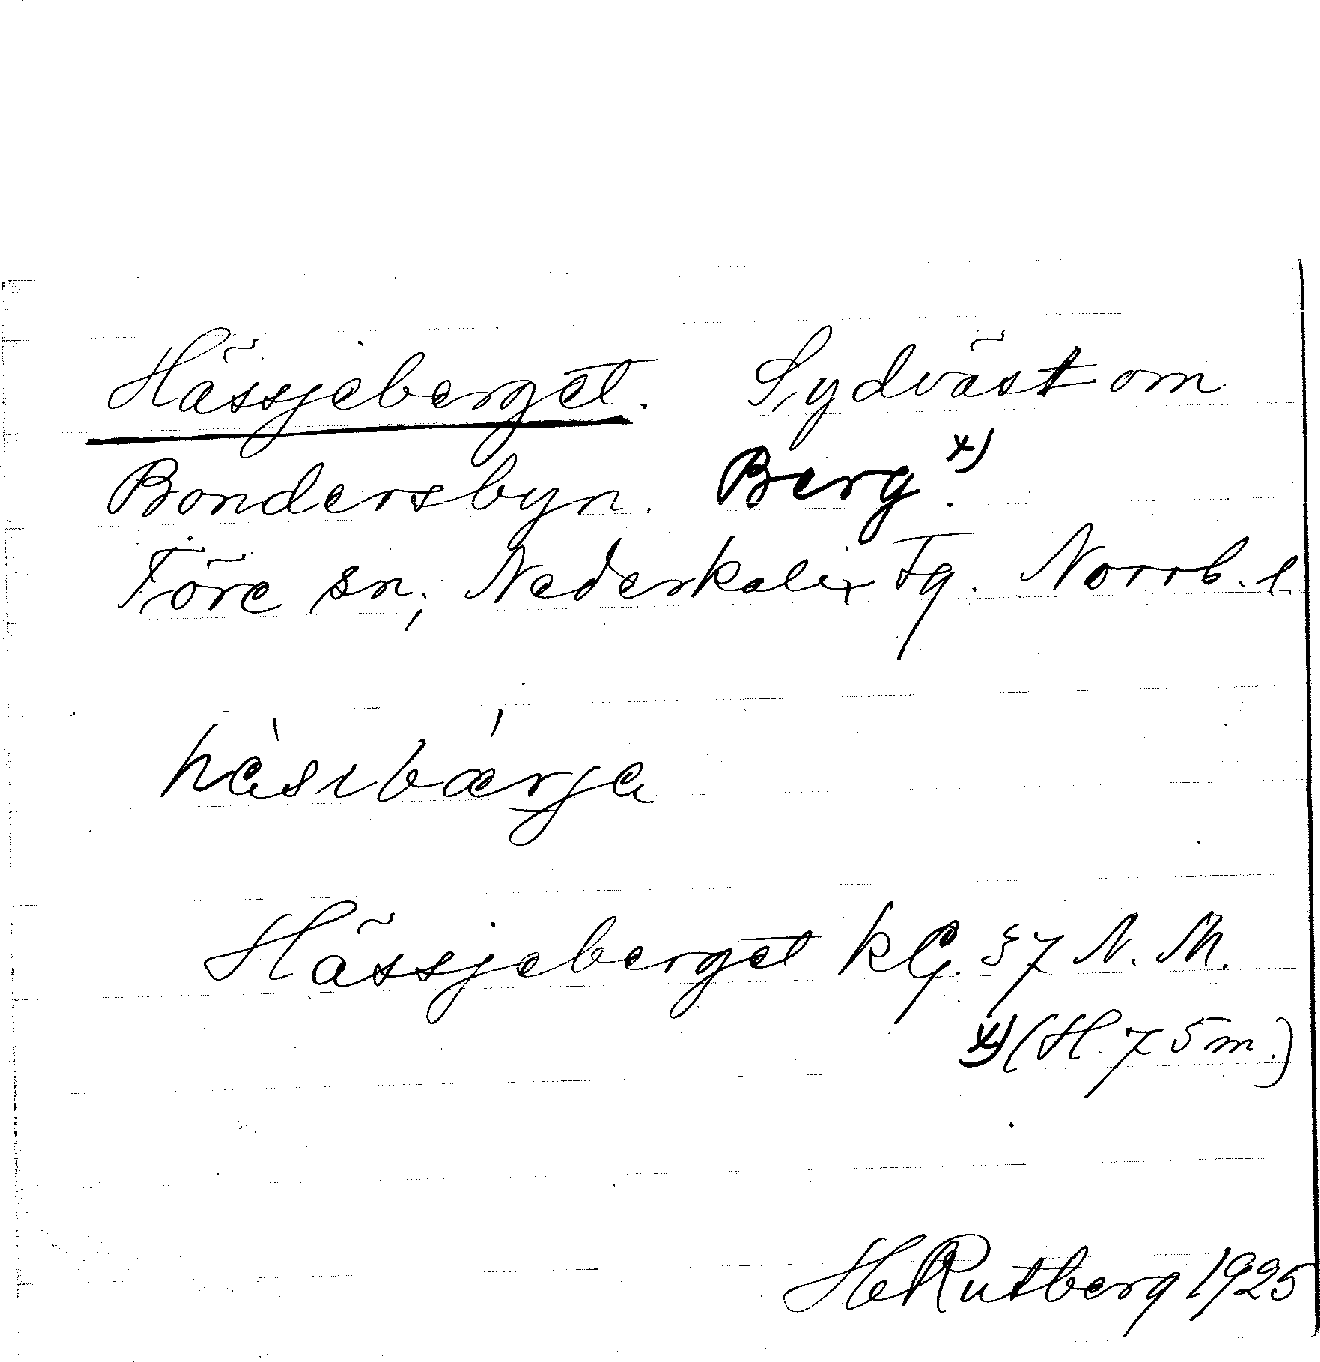 Hässjeberget. Sydväst om
Bondersbyn. Berg.x)
Töre sn; Nederkalix Tg. Norrb. l.
hàsıbǽrja
Hässjeberget kG. 57 N. M.
x) (H. 75 m.)
HeRutberg 1925